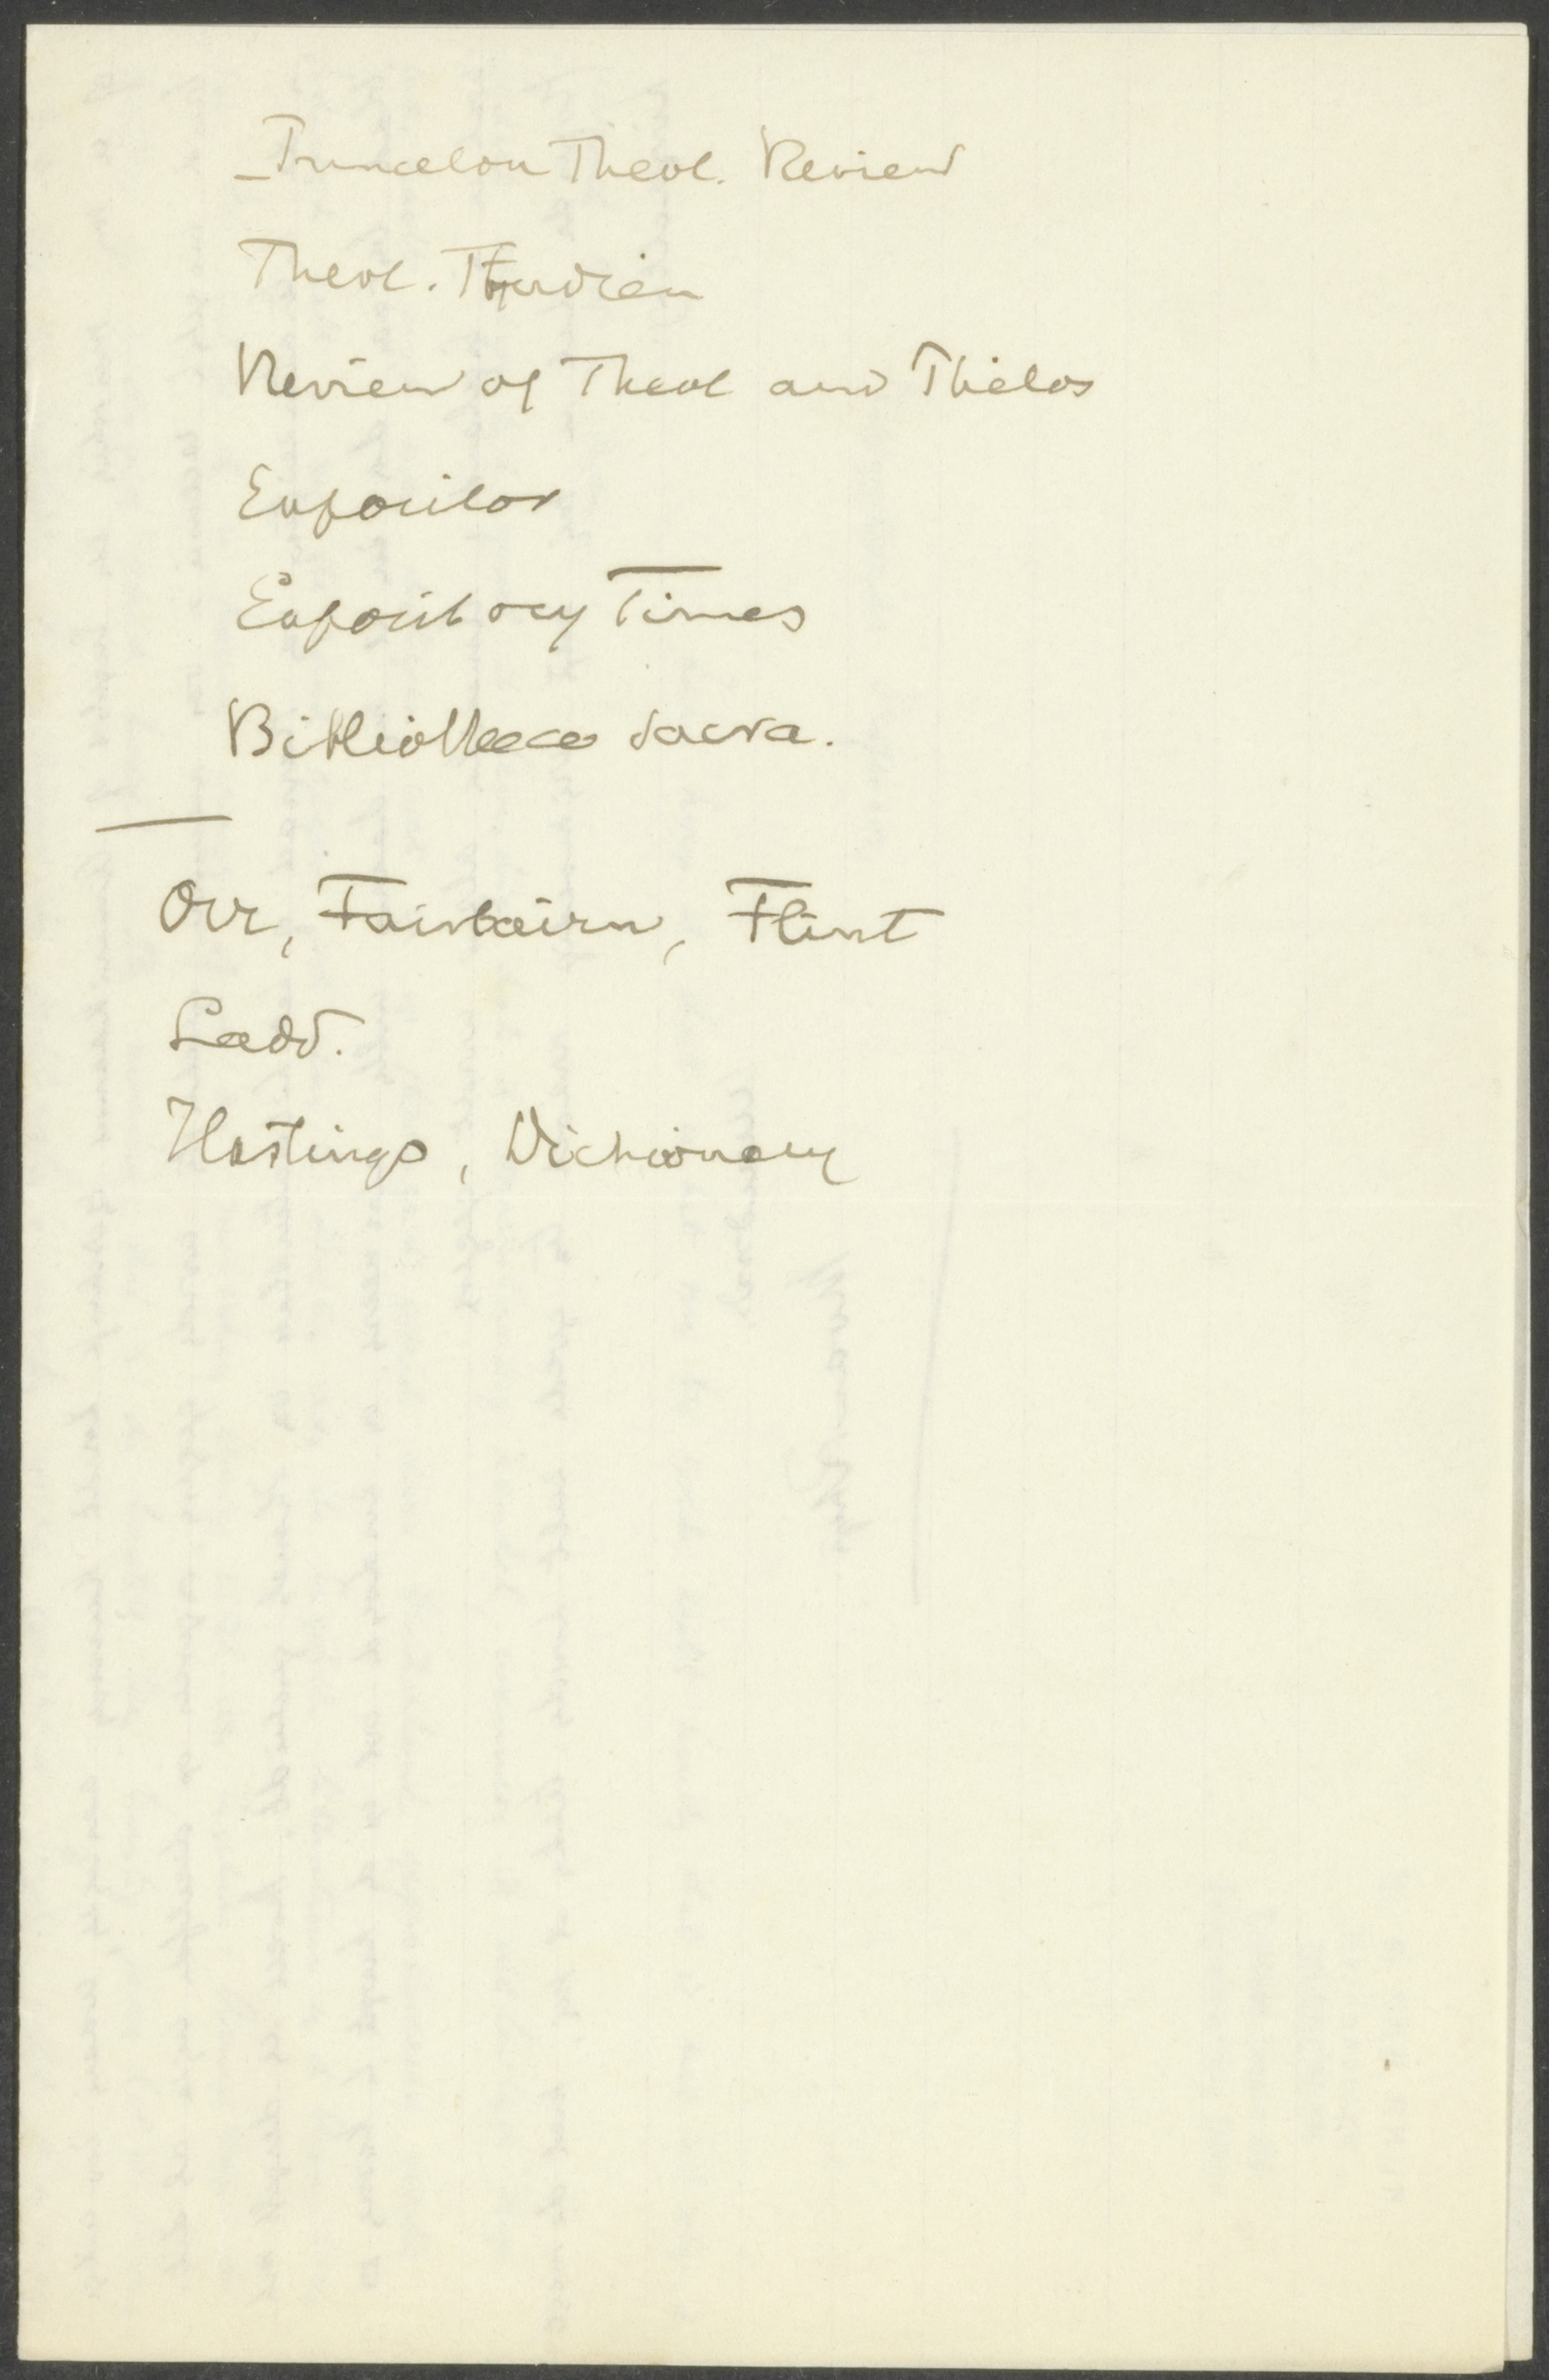 Princeton Theol. Review
Theol. Studien
Review of Theol and Philos
Expositor
Expository Times
Bibliotheca Sacra.
Orr, Fairbairn, Flint
Ladd.
Hastings, Dictionary